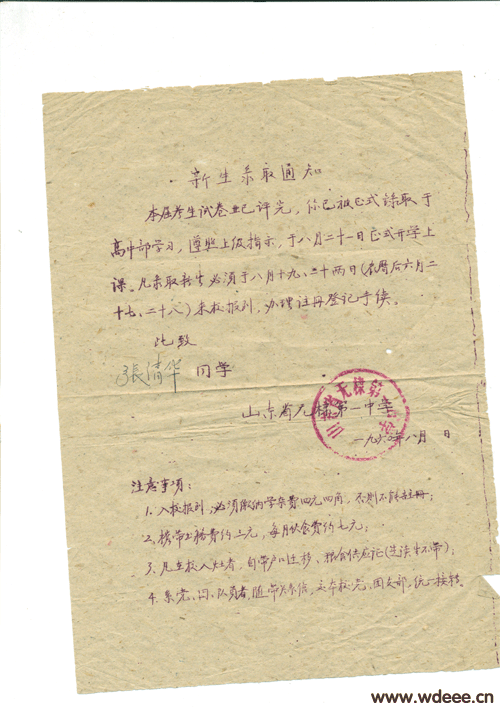 新生录取通知
本届考生试卷业已评完，你已被正式录取于
高中部学习，遵照上级指示，于八月二十一日正式开学上
课。凡录取新生必须于八月十九、二十两日（农历后六月二
十七、二十八）来校报到，办理注册登记手续。
此致
张清华 同学
山东省无棣第一中学
一九六〇年八月 日
注意事项：
1. 入校报到，必须缴纳学杂费四元四角，否则不能注册；
2. 携带书籍费约三元，每月伙食费约七元；
3. 凡在校入灶者，自带户口迁移、粮食供应证（走读生不带）；
4. 系党、团、队员者，随带关系信，交本校党、团支部，统一接转。
www.wdeee.cn